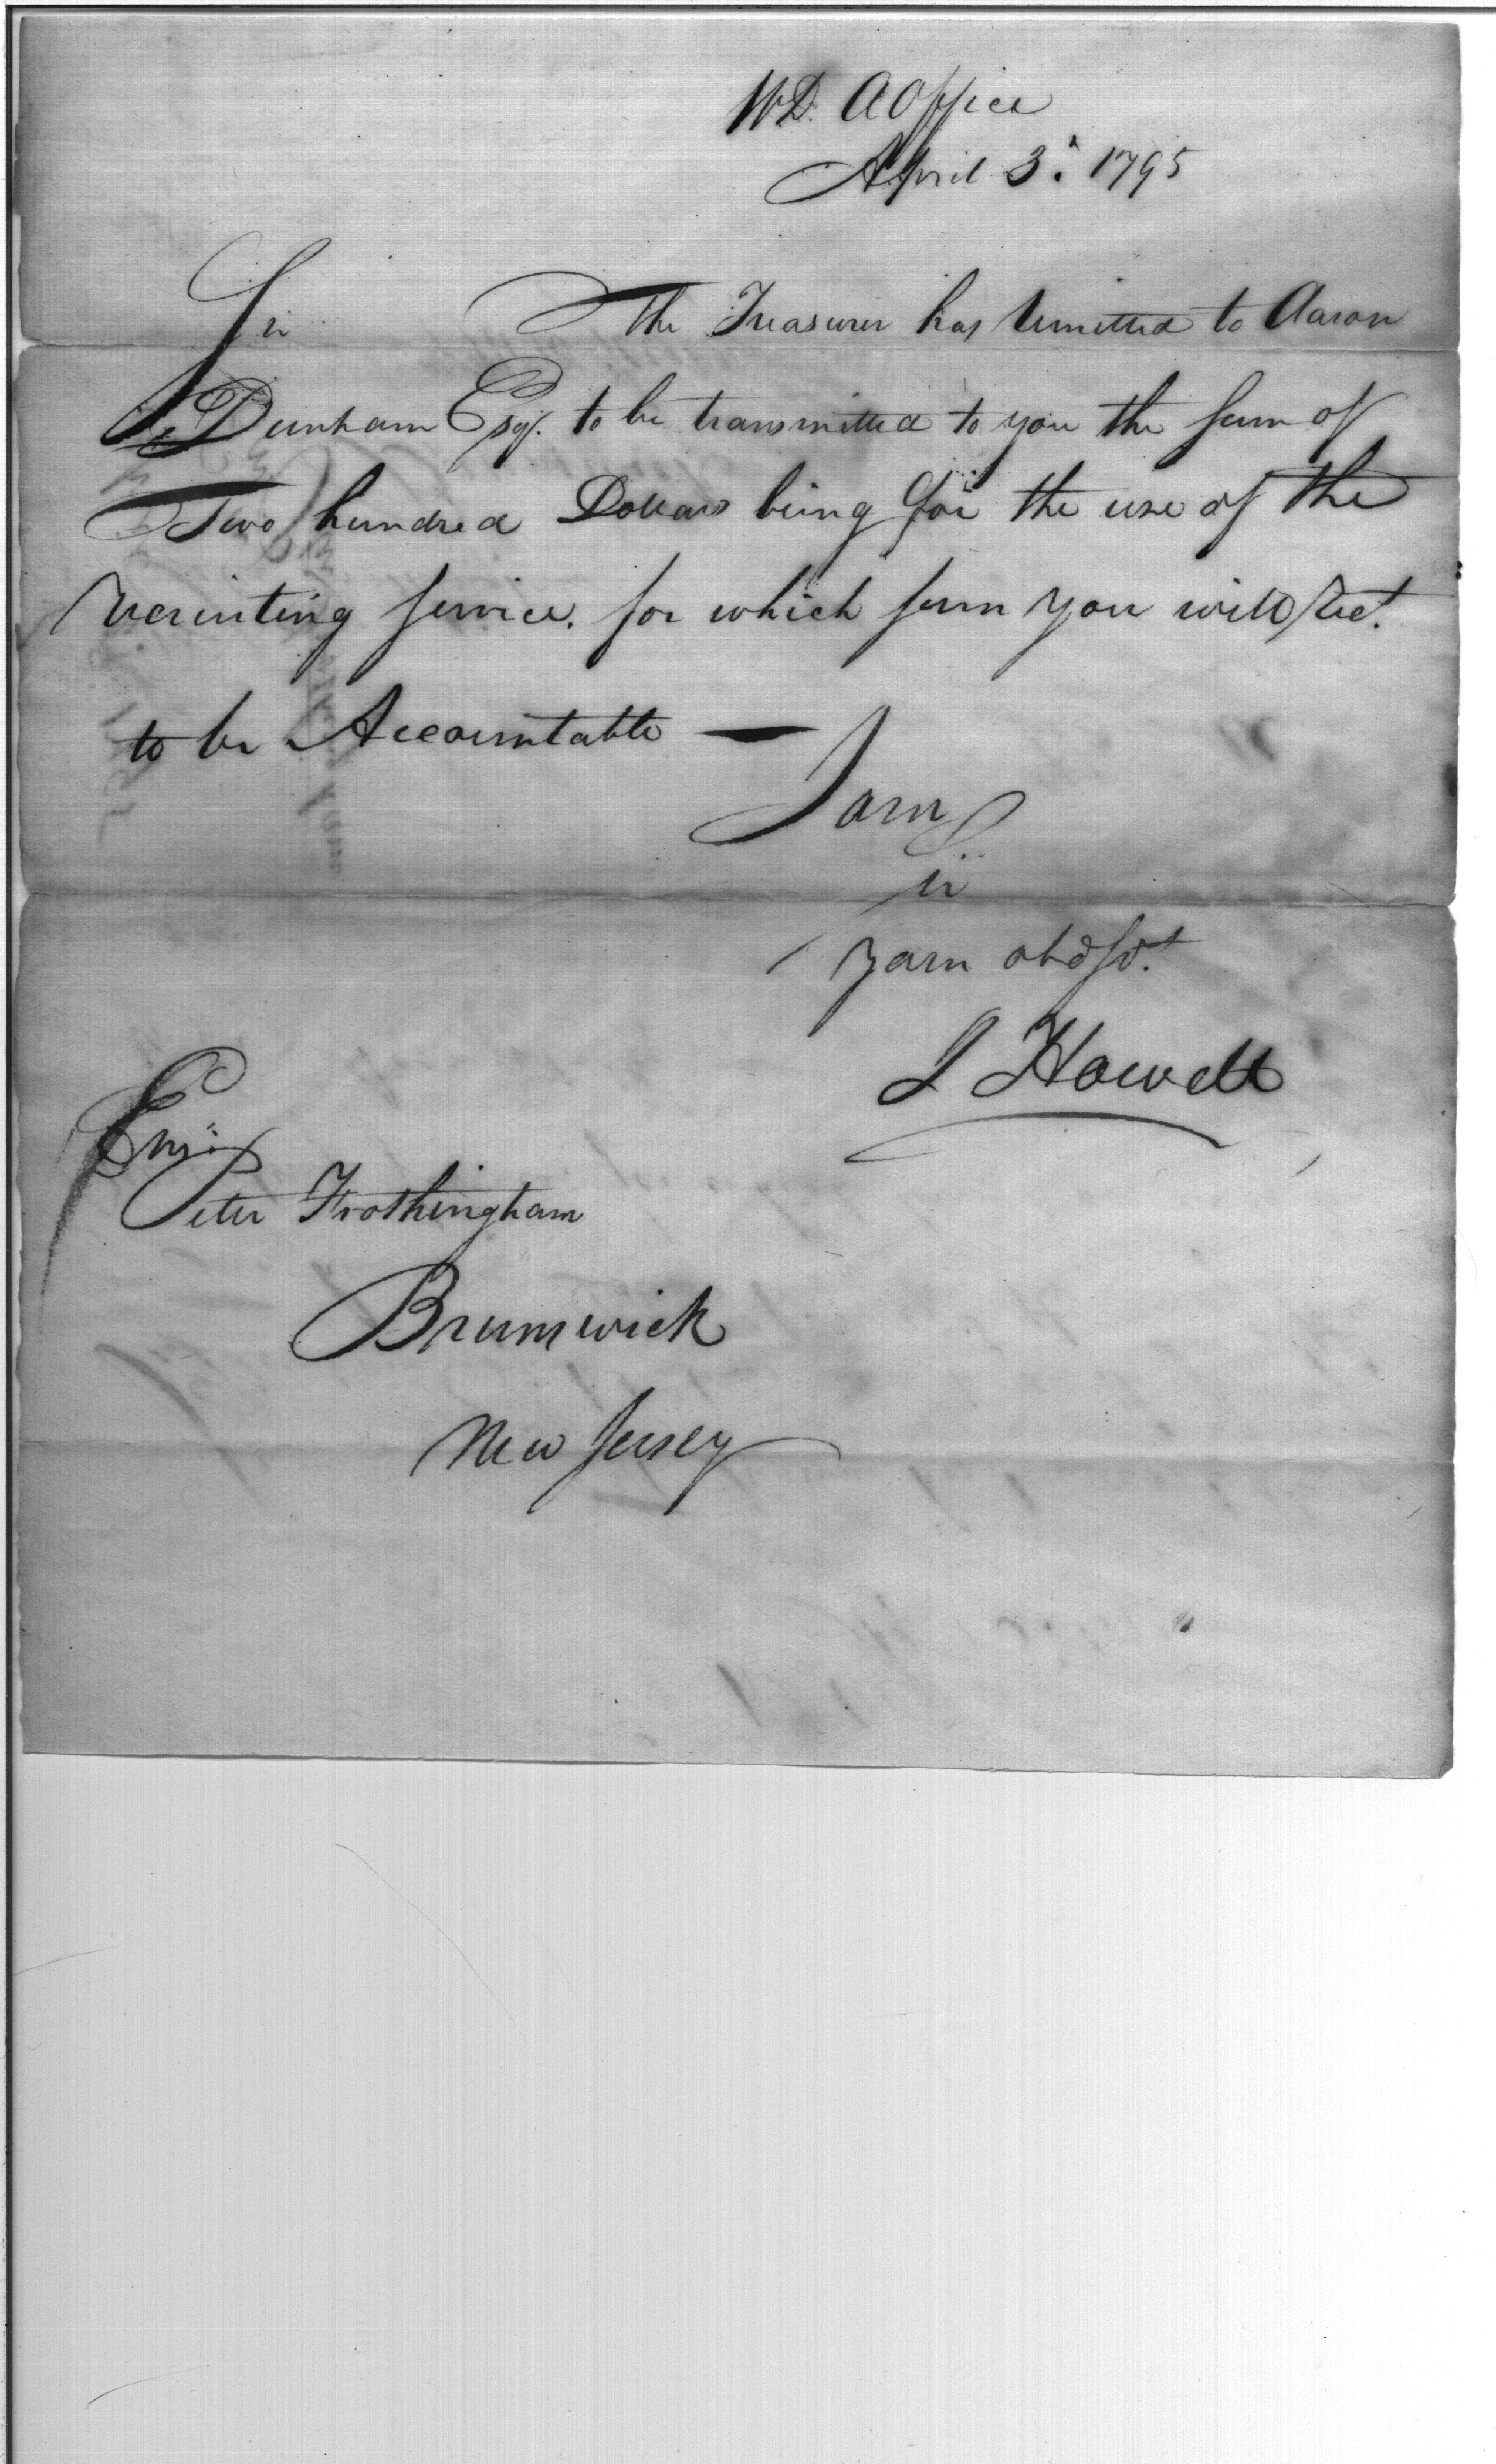 WD. A Office
April 3d. 1795
Sir The Treasurer has remitted to Aaron
Dunham Esqr. to be transmitted to you the sum of
Two hundred Dollars being for the use of the
recruiting service. for which sum you will
to be Accountable —
I am
Sir
Your obd. Svt.
J Howell
Ensign
Peter Frothingham
Brunswick
New Jersey